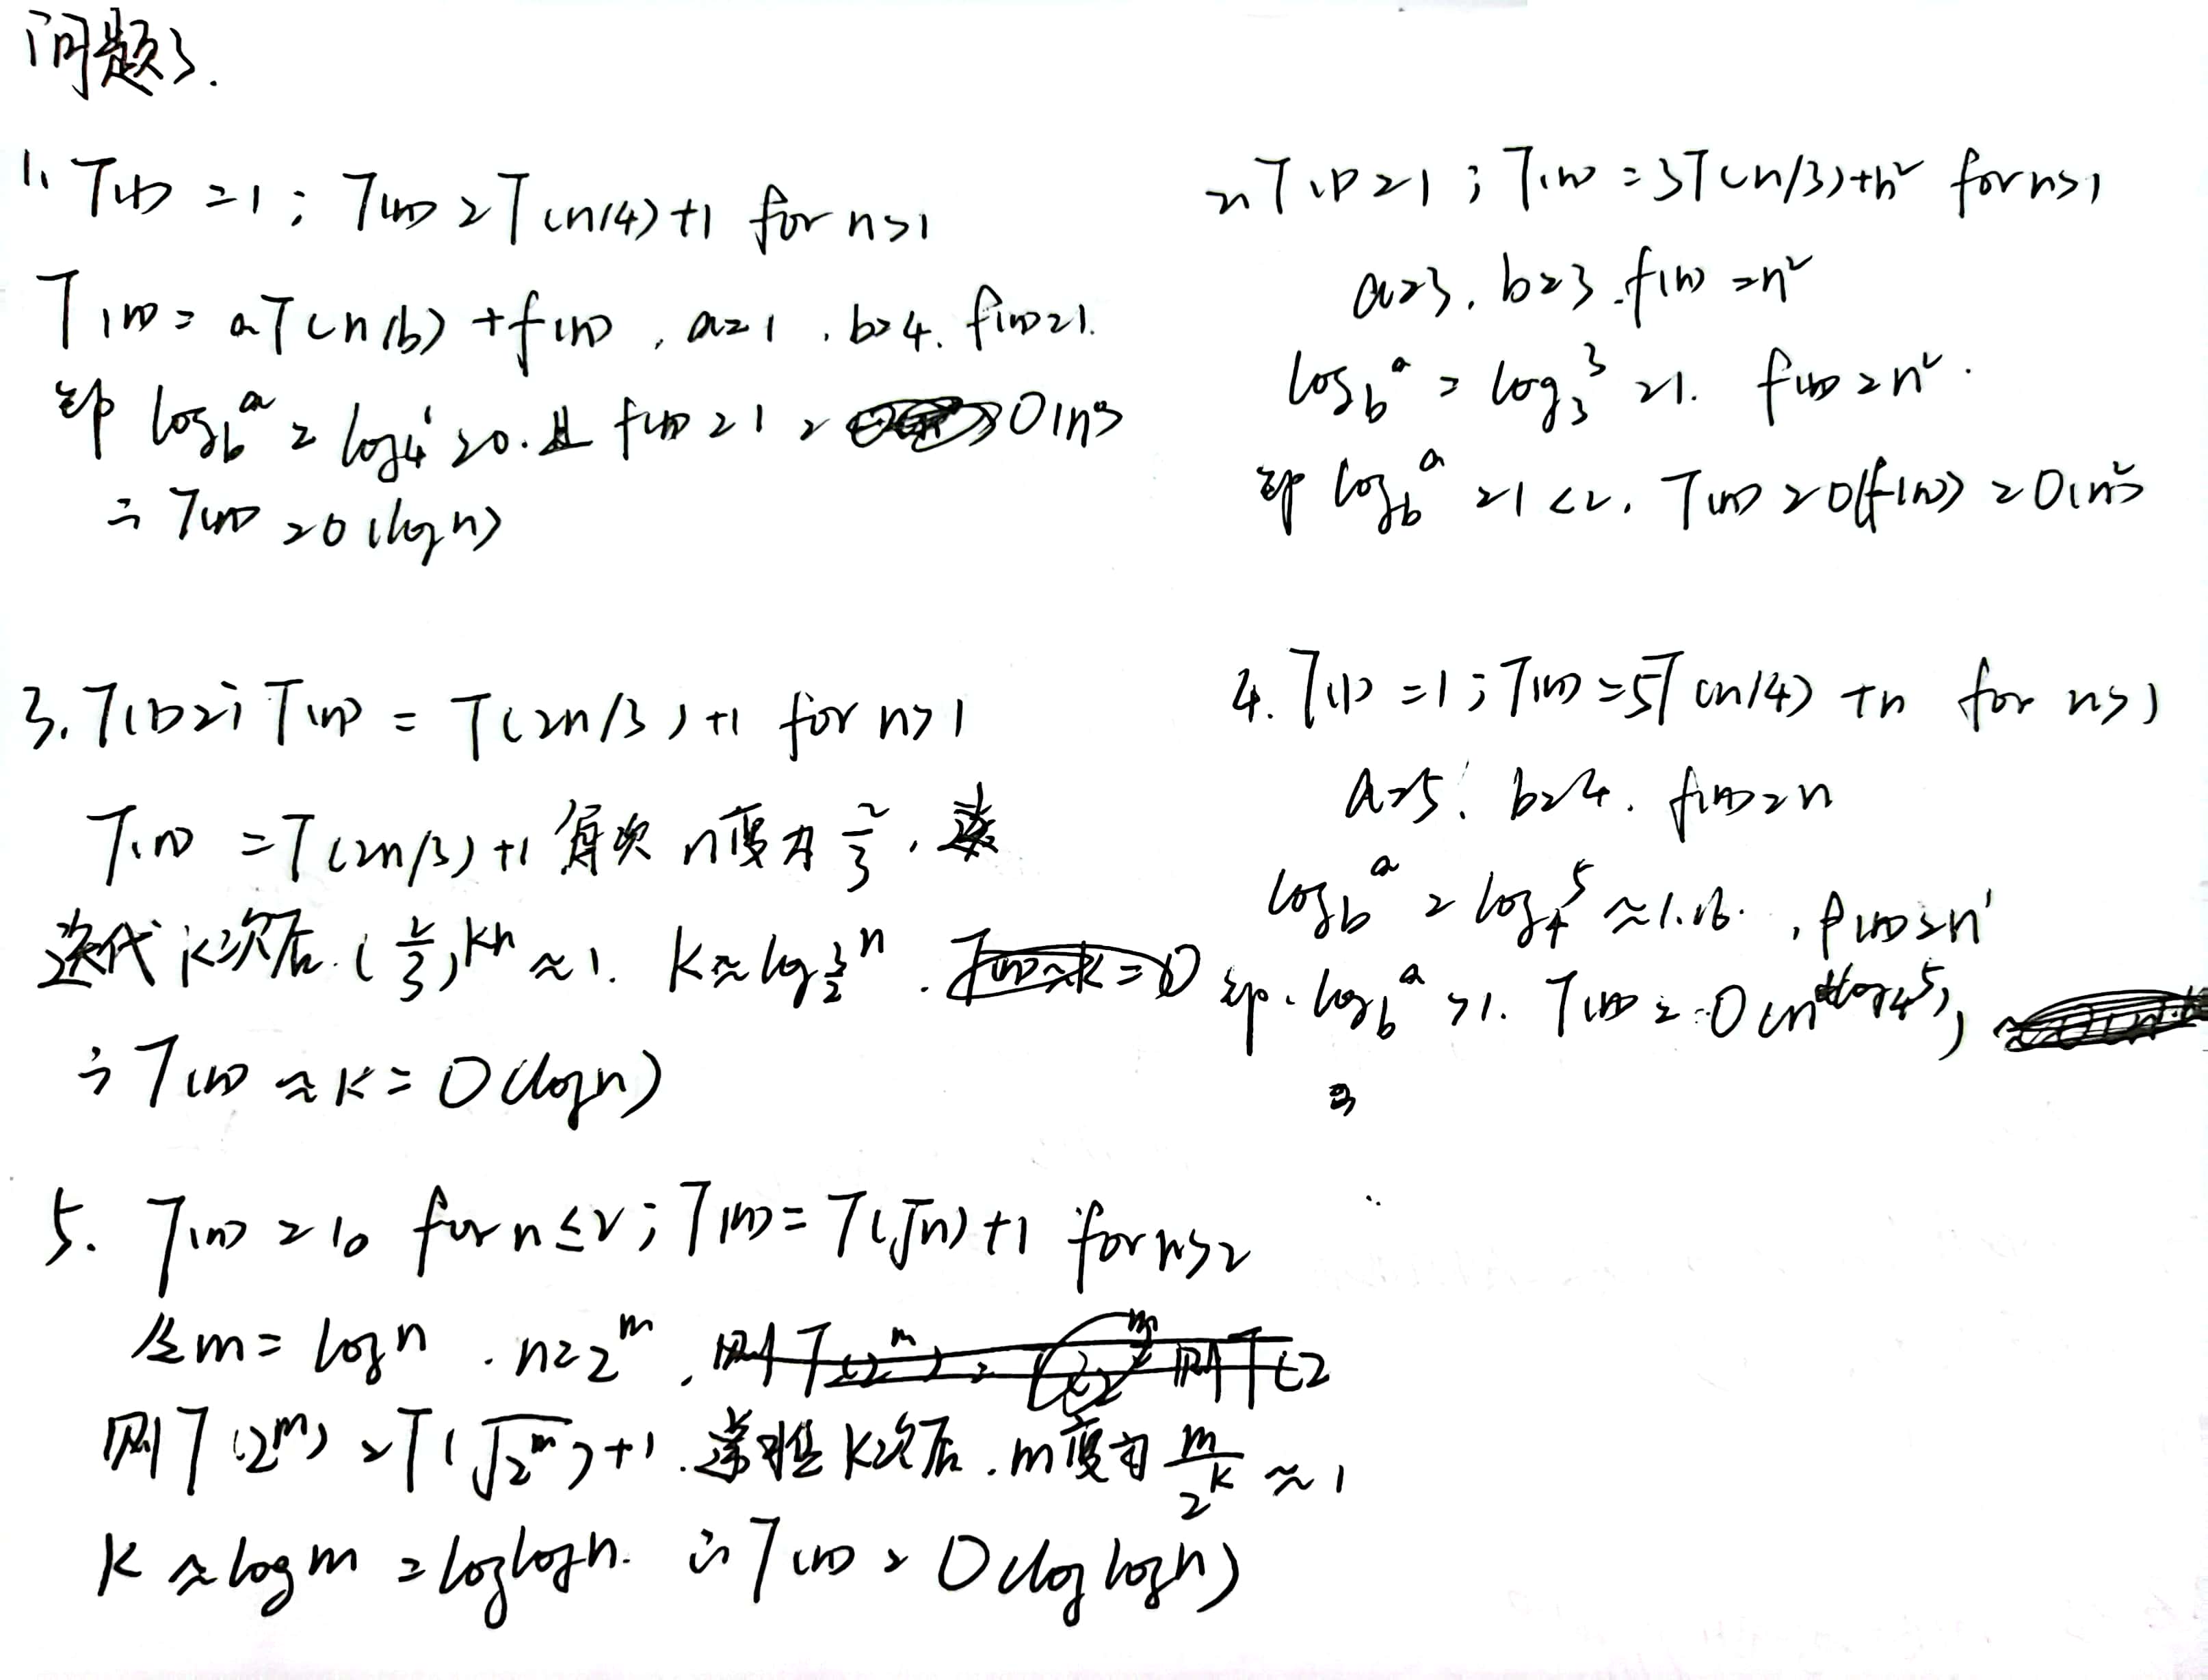 问题3.
1. T(1) = 1; T(n) = T(n/4)+1 for n>1
T(n) = aT(n/b) + f(n), a=1, b=4. f(n)=1.
即 log_b^a = log_4^1 = 0. 且 f(n) = 1 = O(n^0)
∴ T(n) = O(log n)
2. T(1)=1; T(n) = 3T(n/3)+n² for n>1
a=3. b=3. f(n) = n²
log_b^a = log_3^3 = 1. f(n) = n².
即 log_b^a = 1 < 2. T(n) = O(f(n)) = O(n²)
3. T(1)=1; T(n) = T(2n/3)+1 for n>1
T(n) = T(2n/3)+1 每次 n变为 2/3.
迭代 k次后. (2/3)^k n ≈ 1. k ≈ log_{3/2}^n.
∴ T(n) ≈ k = O(log n)
4. T(1) = 1; T(n) = 5T(n/4) + n for n>1
a=5. b=4. f(n)=n
log_b^a = log_4^5 ≈ 1.16. , f(n)=n^1
即. log_b^a > 1. T(n) = O(n^{log_4^5})
5. T(n) = 10 for n≤2; T(n) = T(√n)+1 for n>2
令 m = log n . n=2^m ,
则 T(2^m) = T(√2^m)+1. k次后. m变为 m/2^k ≈ 1
k ≈ log m = log log n. ∴ T(n) = O(log log n)